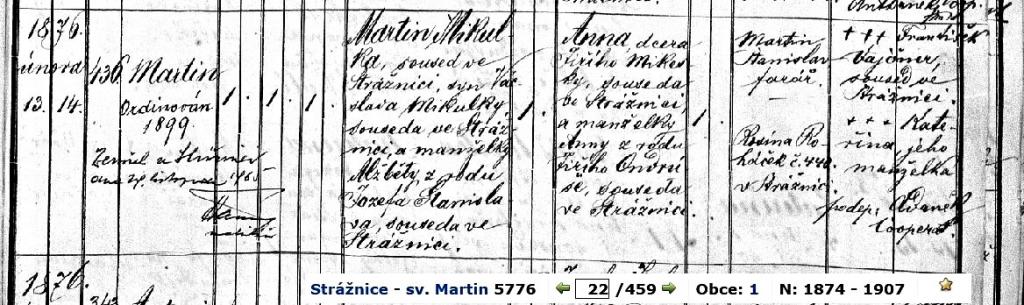 1876.
února
13. 14.
436 Martin
Ordinován
1899.
Zemřel v
dne listopadu
1. 1. 1.
Martin Mikul-
ka, soused ve
Strážnici, syn Vác-
slava Mikulky
souseda ve Stráž-
nici, a manželky
Alžběty z rodu
Jozefa Stanisla-
va, souseda ve
Strážnici.
1.
Anna dcera
Jiřího Mikes-
ky, souseda
ve Strážnici,
a manželky
Anny z rodu
Jiřího Ondrů
še, souseda
ve Strážnici.
1.
Martin
Stanislav
farář.
Rosina Ro-
háček č. 448.
v Strážnici.
+++ František
soused ve
Strážnici.
+++ Kate-
řina jeho
manželka
podep.
Cooperat.
1876.
Strážnice - sv. Martin 5776 22 /459 Obce: 1 N: 1874 - 1907